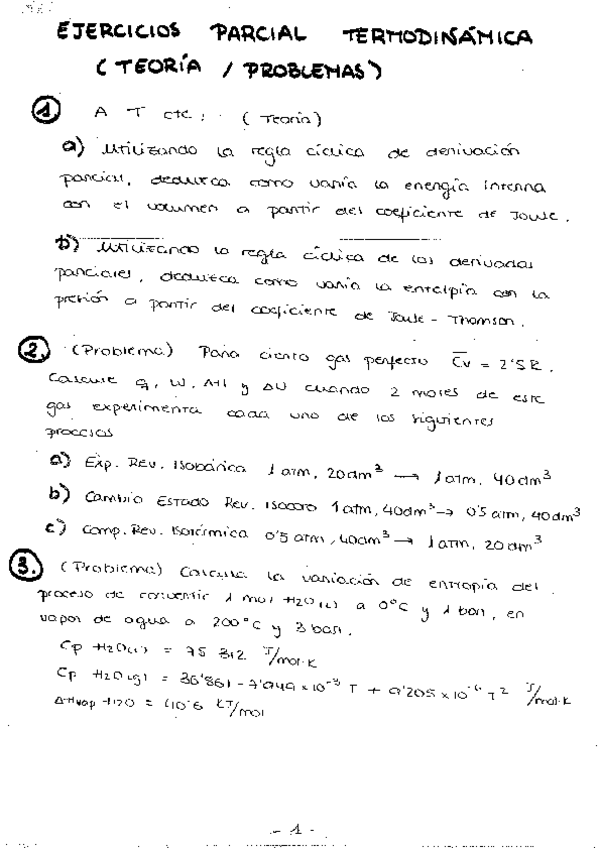 EJERCICIOS PARCIAL TERMODINÁMICA
(TEORÍA / PROBLEMAS)
1 A T cte: (Teoría)
a) Utilizando la regla cíclica de derivación
parcial, deduzca como varía la energía interna
con el volumen a partir del coeficiente de Joule.
b) Utilizando la regla cíclica de las derivadas
parciales, deduzca como varía la entalpía con la
presión a partir del coeficiente de Joule - Thomson.
2. (Problema) Para cierto gas perfecto Cv = 2'5R.
Calcule q, W, ΔH y ΔU cuando 2 moles de este
gas experimenta cada uno de los siguientes
procesos
a) Exp. Rev. Isobárica 1 atm, 20 dm³ → 1 atm, 40 dm³
b) Cambio Estado Rev. Isocoro 1 atm, 40 dm³ → 0'5 atm, 40 dm³
c) Comp. Rev. Isotérmica 0'5 atm, 40 dm³ → 1 atm, 20 dm³
3. (Problema) Calcula la variación de entropía del
proceso de convertir 1 mol H2O(l) a 0°C y 1 bar, en
vapor de agua a 200°C y 3 bar.
Cp H2O(l) = 75'312 J/mol·K
Cp H2O(g) = 36'861 - 7'949 × 10⁻³ T + 9'205 × 10⁻⁶ T² J/mol·K
ΔHvap H2O = 40'6 KJ/mol
- 1 -